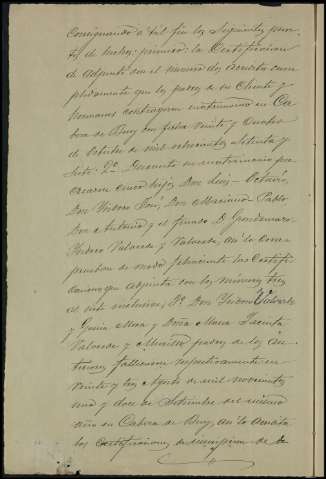 consignando a tal fin los siguientes pun-
tos de hecho: primero: la Certificacion
de adjunto con el número dos acredita cum-
plidamente que los padres de su Cliente y
hermanos contrageron matrimonio en Ca-
bra de fecha veinte y cuatro
de Octubre de mil ochocientos setenta y
siete: 2º Durante su matrimonio pro-
crearon cinco hijos Don Luis - Octavio,
Don Isidoro José, Don Maximino Pablo
Don Antonio y el finado D.
Isidoro Valverde y Valverde, asi lo com-
prueban de modo fehaciente las Certifi-
caciones que adjunta con los números tres
al siete inclusives; 3º Don Isidoro Valverde
y Mora y Doña Maria Jacinta
Valverde y padres de los an-
teriores fallecieron respectivamente en
veinte y tres Agosto de mil novecientos
uno y doce de Setiembre del mismo
año en Cabeza de Buey, asi lo acredita
las certificaciones de de